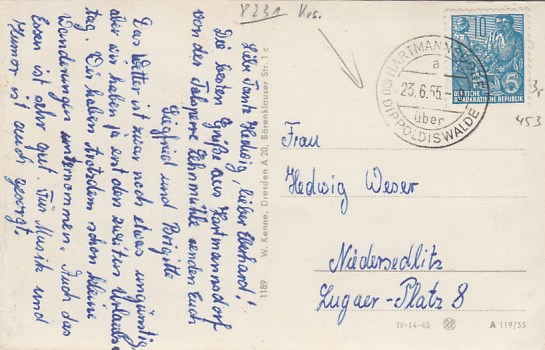 8231 Krs.
Liebe Tante Hedwig, lieber Eberhard!
Die besten Grüße aus Hartmannsdorf
von der Talsperre Lehnmühle senden Euch
Siegfried und Brigitte
Das Wetter ist zwar noch etwas ungünstig
aber wir haben ja erst den zweiten Urlaubs-
tag. Wir haben trotzdem schon kleine
Wanderungen unternommen. Auch das
Essen ist sehr gut. Für Musik und
Humor ist auch gesorgt.
1189 W. Kenne, Dresden A 20, Bärensklauser Str. 1 c
HARTMANNSDORF
a
23.6.55
über
DIPPOLDISWALDE
10
5
DEUTSCHE
DEMOKRATISCHE REPUBLIK
453
Frau
Hedwig Weser
Niedersedlitz
Lugaer-Platz 8
IV-14-45
A 119/55